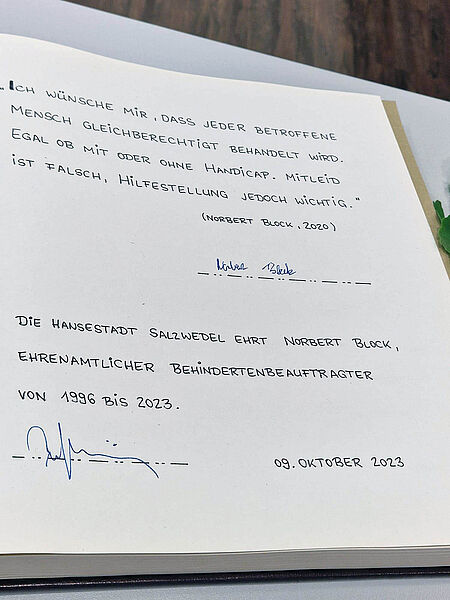 „Ich wünsche mir, dass jeder betroffene
Mensch gleichberechtigt behandelt wird.
Egal ob mit oder ohne Handicap. Mitleid
ist falsch, Hilfestellung jedoch wichtig."
(Norbert Block, 2020)
Norbert Block
Die Hansestadt Salzwedel ehrt Norbert Block,
ehrenamtlicher Behindertenbeauftragter
von 1996 bis 2023.
09. Oktober 2023